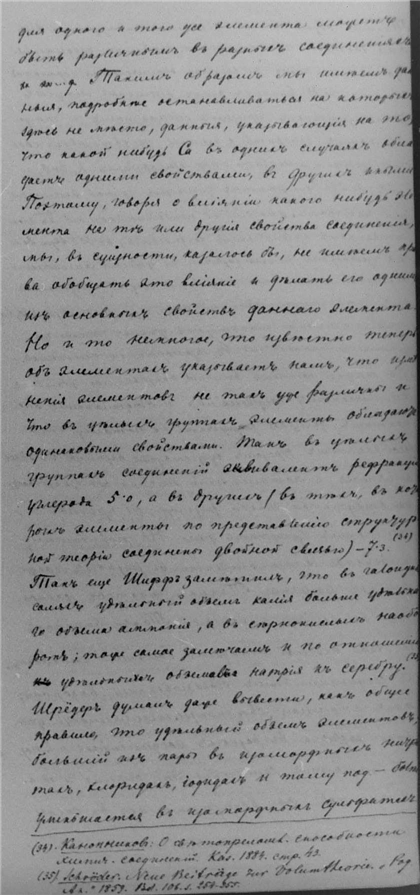 для одного и того же элемента может
быть различнымъ въ разныхъ соединеніяхъ
и т.д. Такимъ образомъ мы имѣемъ дан
ныя, подробнѣе останавливаться на которыхъ
здѣсь не мѣсто, данныя, указывающія на то,
что какой нибудь Ca въ однихъ случаяхъ обла
даетъ одними свойствами, въ другихъ иными
Поэтому, говоря о вліяніи какого нибудь эле
мента на тѣ или другія свойства соединенія,
мы, въ сущности, казалось бы, не имѣемъ пра
ва обобщать это вліяніе и дѣлать его однимъ
изъ основныхъ свойствъ даннаго элемента.
Но и то немногое, что извѣстно теперь
объ элементахъ указываетъ намъ, что измѣ
ненія элементовъ не такъ уже различны и
что въ цѣлыхъ группахъ элементы обладаютъ
одинаковыми свойствами. Такъ въ цѣлыхъ
группахъ соединеній эквивалентъ рефракціи
углерода 5·0, а въ другихъ (въ тѣхъ, въ кото
рыхъ элементы по представленію структур
ной теоріи соединены двойной связью) — 7·3. (34)
Такъ еще Шиффъ замѣтилъ, что въ галоидныхъ
соляхъ удѣльный объемъ калія больше удѣльна
го объема аммонія, а въ сѣрнокислыхъ наобо
ротъ; тоже самое замѣчаемъ и по отношенію
удѣльныхъ объемовъ натрія къ серебру. (35)
Шрёдеръ думалъ даже вывести, какъ общее
правило, что удѣльный объемъ элементовъ,
большій изъ пары въ изоморфныхъ нитра
тахъ, хлоридахъ, іодидахъ и тому под —
уменьшается въ изоморфныхъ сульфатахъ
(34) Канонниковъ: О свѣтопреломл. способности
химич. соединеній. Каз. 1884. стр. 43.
(35) Schröder. Neue Beiträge zur Volumtheorie. Pog
Ann. 1859. Bd. 106. s. 254-255.